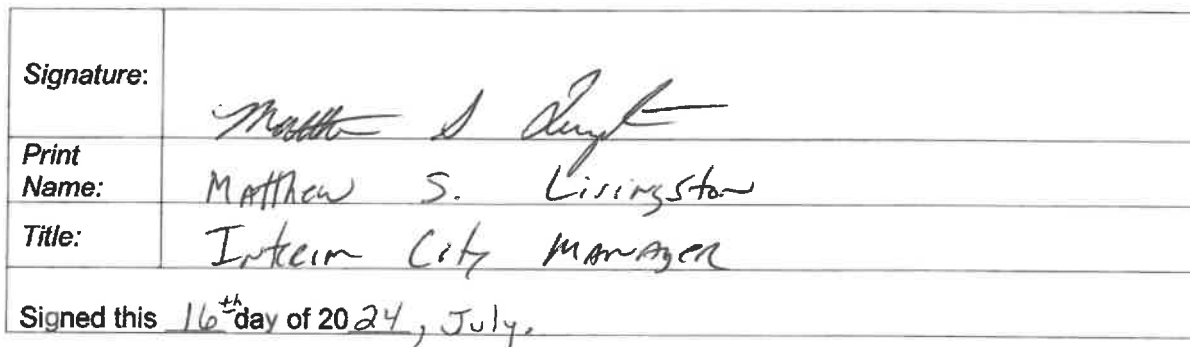 Signature: Matthew S
Print
Name: Matthew S. Livingston
Title: Interim City Manager
Signed this 16th day of 2024, July.